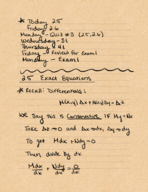 * Today 2.5
Friday 2.6
Monday - Quiz #3 (2.5, 2.6)
Wednesday - 3.1
Thursday - 4.1
Friday - Review for Exam 1
Monday - Exam 1
2.5 Exact Equations
* Recall: Differentials:
M(x,y)dx + N(x,y)dy = Δz
We Say this is Conservative if My = Nx
Take Δz → 0 and Δx → dx, Δy → dy
To get Mdx + Ndy = 0
Then divide by dx
Mdx/dx + Ndy/dx = 0/dx